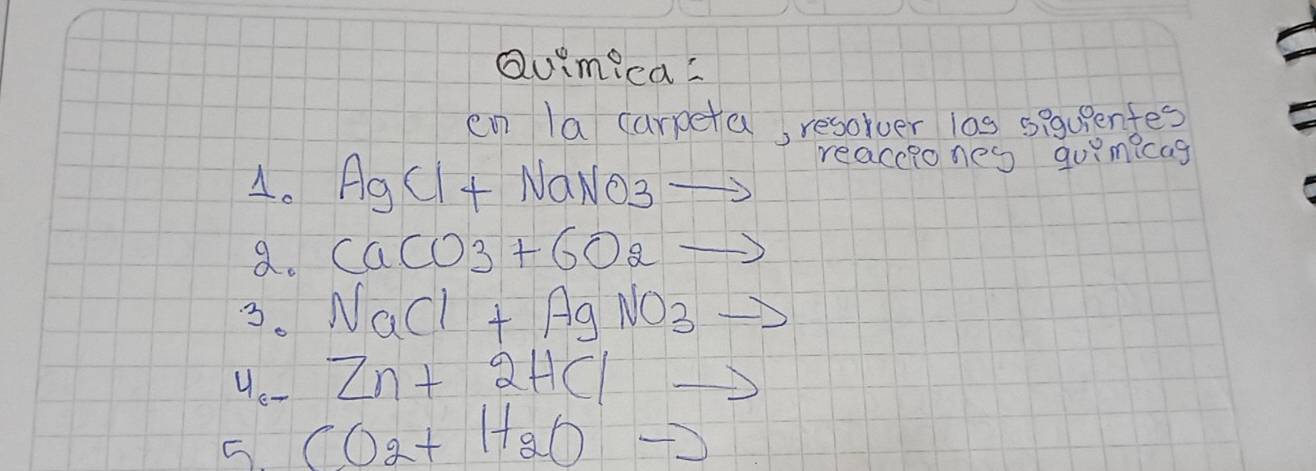 Química:
en la carpeta, resolver las siguientes
reacciones químicas
1. AgCl + NaNO3 →
2. CaCO3 + 6O2 →
3. NaCl + AgNO3 →
4.- Zn + 2HCl →
5. CO2 + H2O →